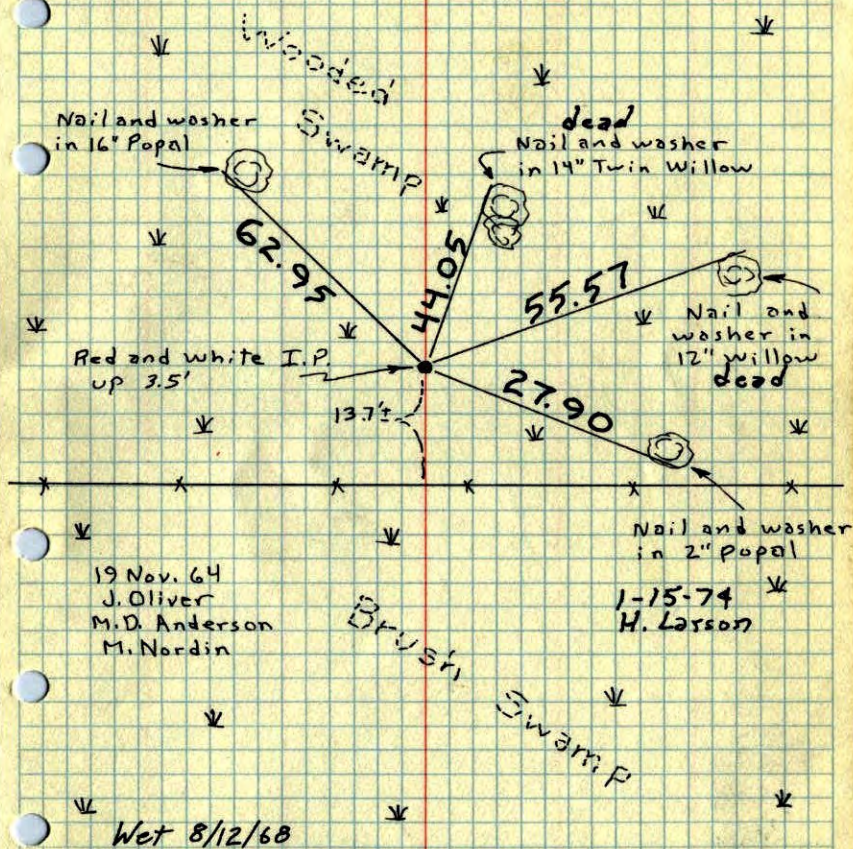 Wooded
Swamp
Nail and washer
in 16" Popal
dead
Nail and washer
in 14" Twin Willow
62.95
44.05
55.57
Nail and
washer in
12" Willow
dead
Red and white I.P.
up 3.5'
27.90
13.7'±
Nail and washer
in 2" Popal
19 Nov. 64
J. Oliver
M.D. Anderson
M. Nordin
1-15-74
H. Larson
Brush
Swamp
Wet 8/12/68